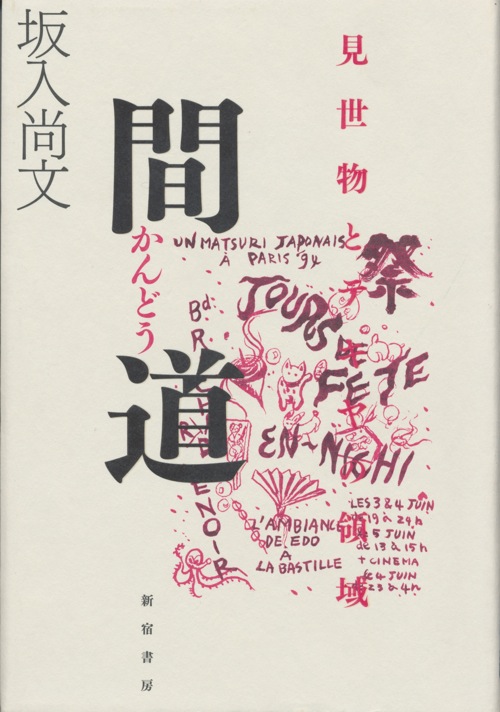 坂入尚文
間道
かんどう
見世物とテキヤの領域
UN MATSURI JAPONAIS
À PARIS '94
祭
JOURS DE
FÊTE
EN-NICHI
Bd. R
ENOIR
L'AMBIANCE
DE EDO
À
LA BASTILLE
LES 3 & 4 JUIN
de 19 à 24h
5 JUIN
de 13 à 15h
+ CINEMA
4 JUIN
23 à 4h
新宿書房